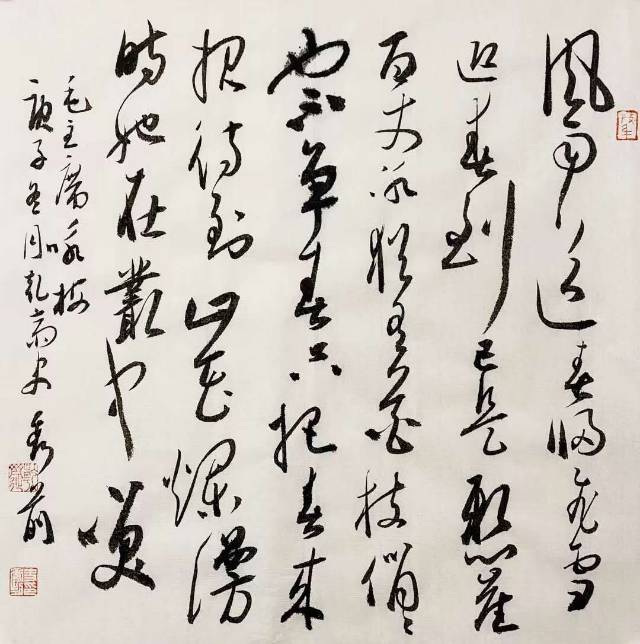 風雨送春归飛雪
迎春到已是懸崖
百丈冰犹有花枝俏〻
也不争春只把春来
报待到山花爛漫
時她在叢中笑
毛主席咏梅
庚子冬月